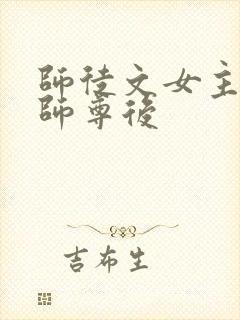 師徒文女主
師尊後
吉布生